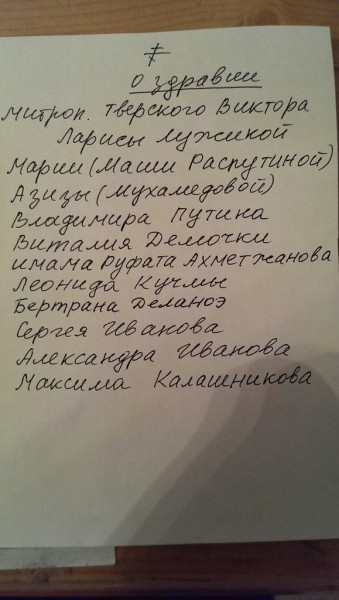 О здравии
Митроп. Тверского Виктора
Ларисы Лужикой
Марии (Маши Распутиной)
Азизы (Мухамедовой)
Владимира Путина
Виталия Демочки
имама Руфата Ахметжанова
Леонида Кучмы
Бертрана Деланоэ
Сергея Иванова
Александра Иванова
Максима Калашникова